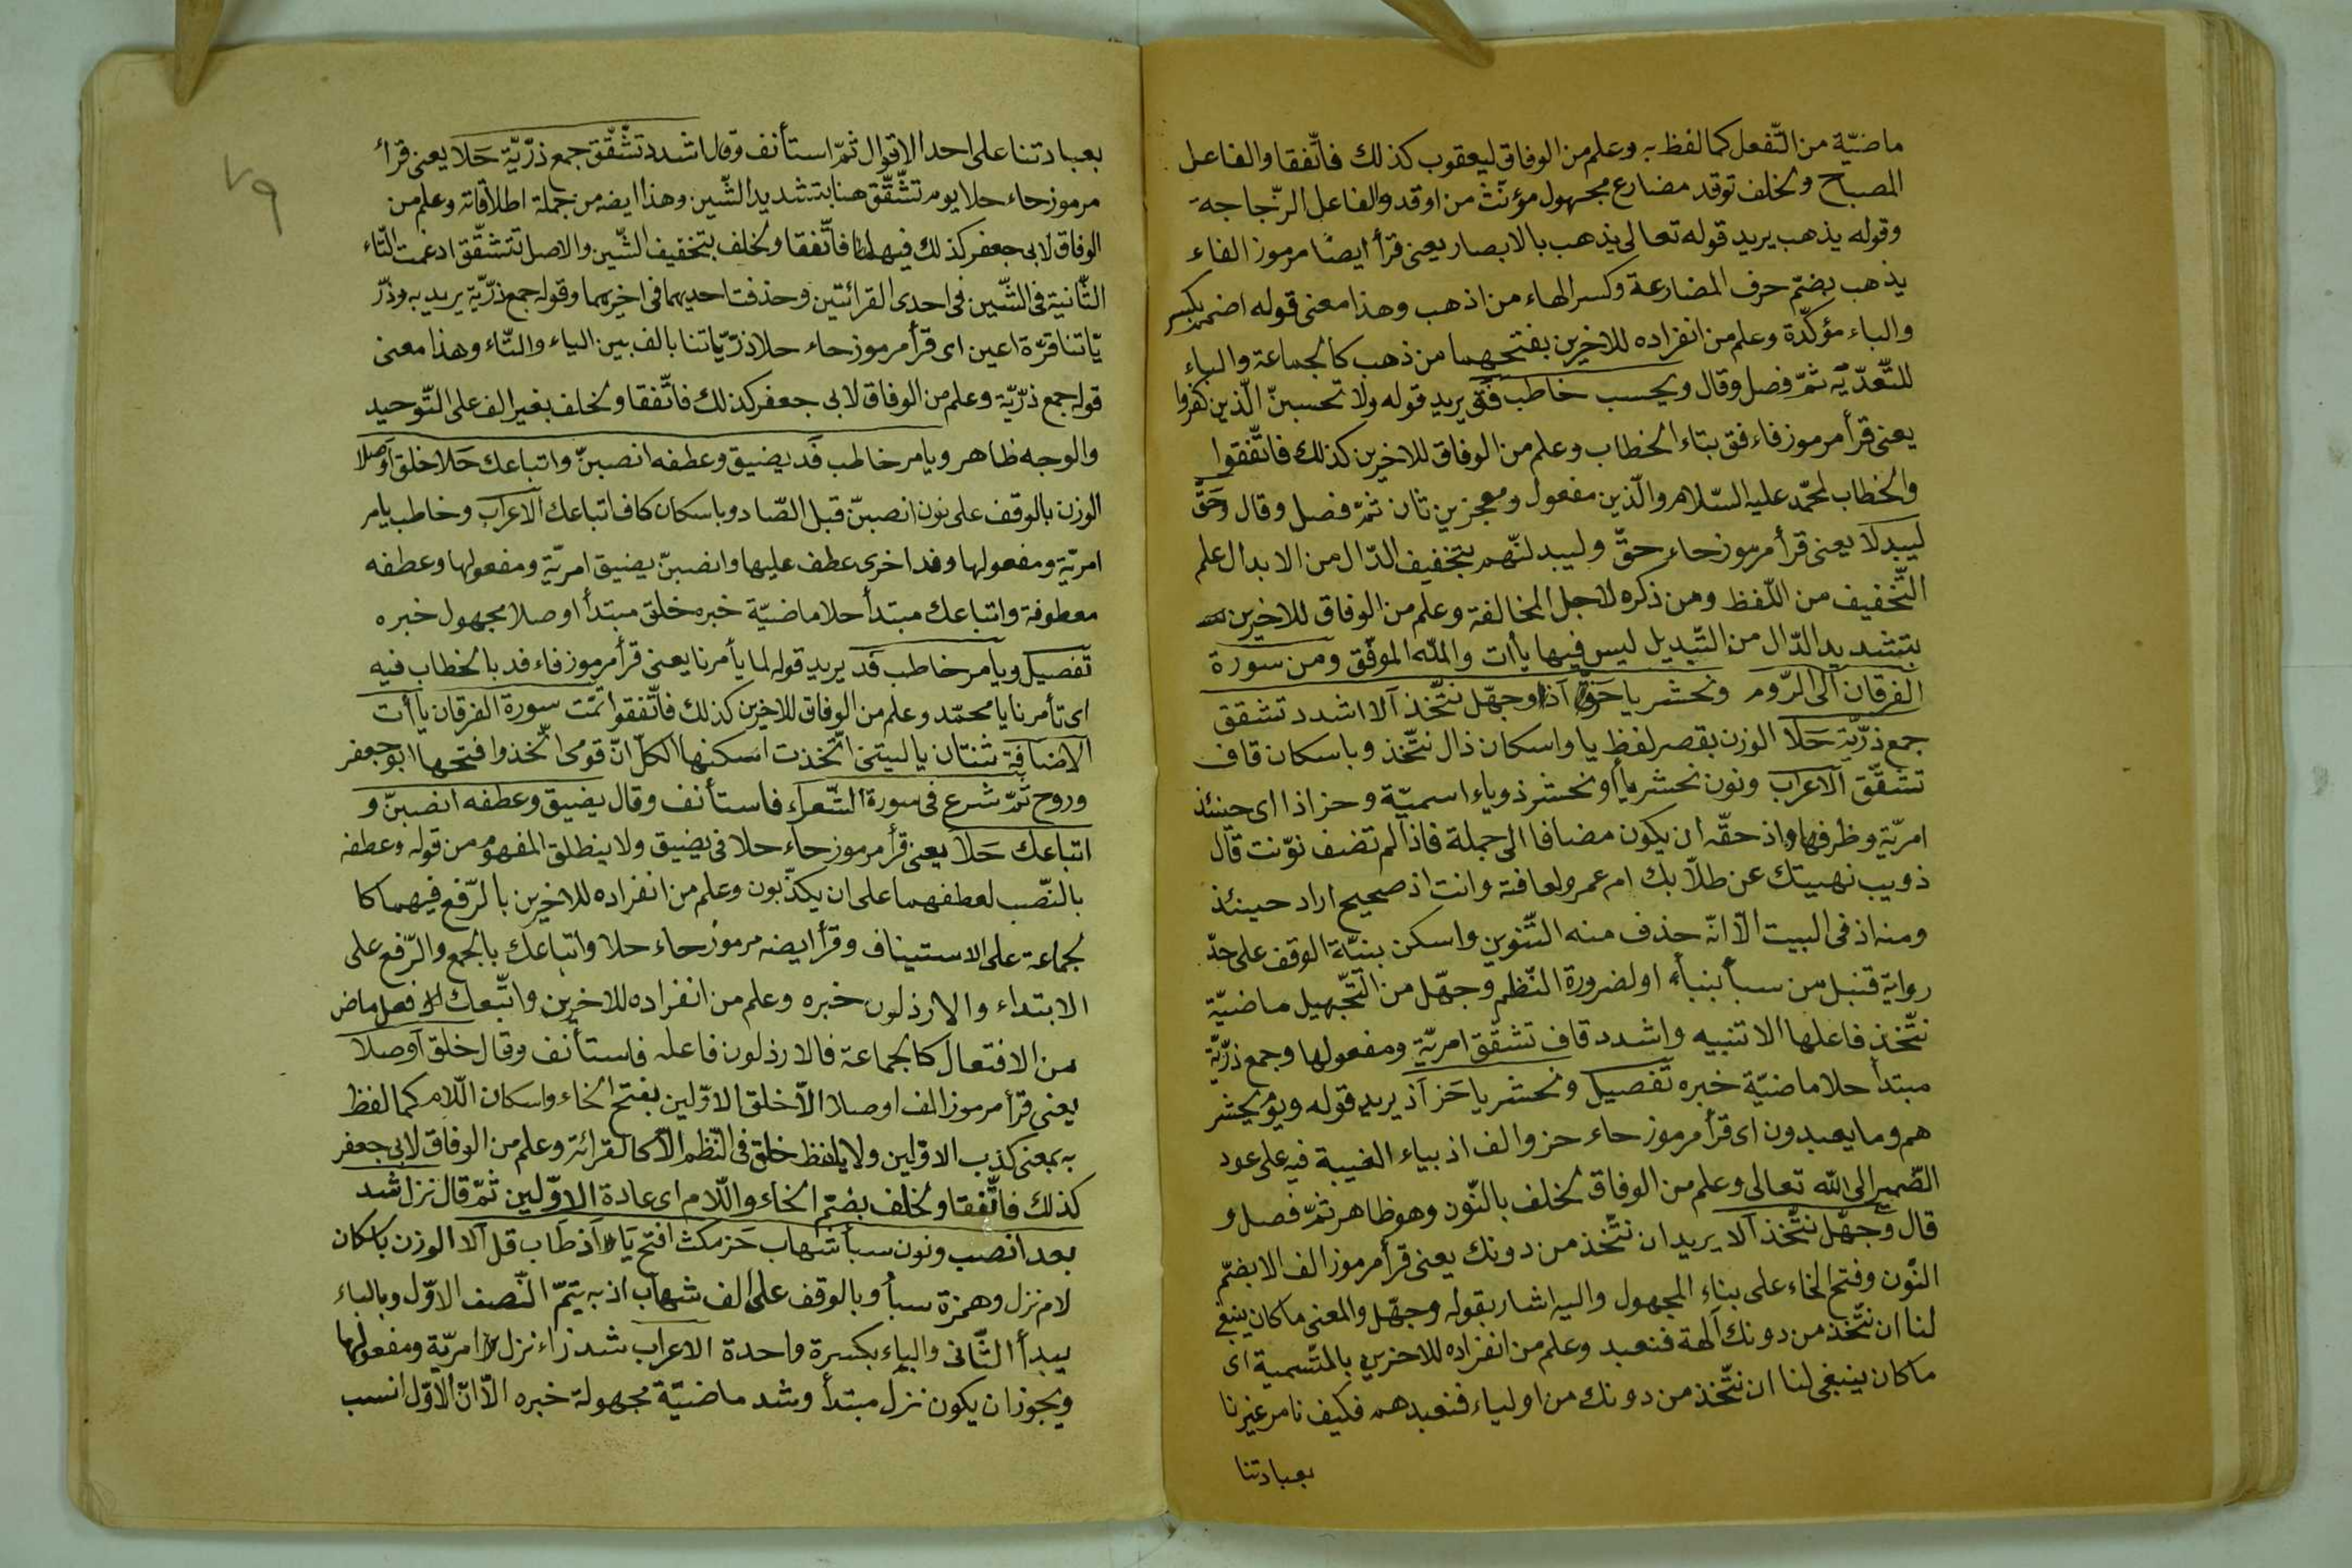 ماضيّة من التّفعل كما لفظ به وعلم من الوفاق ليعقوب كذلك فاتّفقا والفاعل
المصباح ولخلف توقد مضارع مجهول مؤنّث من اوقد والفاعل الزّجاجة
وقوله يذهب يريد قوله تعالى يذهب بالابصار يعنى قرأ ايضًا مرموز الفاء
يذهب بضمّ حرف المضارعة وكسر الهاء من اذهب وهذا معنى قوله اضمم بكسر
والباء مؤكّدة وعلم من انفراده للاخرين بفتحهما من ذهب كالجماعة والباء
للتّعدّيه ثمّ فصل وقال ويحسب خاطب فق يريد قوله ولا تحسبنّ الّذين كفروا
يعنى قرأ مرموز فاء فق بتاء الخطاب وعلم من الوفاق للاخرين كذلك فاتّفقوا
والخطاب لمحمّد عليه السّلام والّذين مفعول ومعجزين ثان ثمّ فصل وقال وحقّ
ليبدلا يعنى قرأ مرموز حاء حقّ وليبدلنّهم بتخفيف الدّال من الابدال علم
التّخفيف من اللّفظ ومن ذكره لاجل المخالفة وعلم من الوفاق للاخرين
بتشديد الدّال من التّبديل ليس فيها يأات والله الموفّق ومن سورة
الفرقان الى الرّوم ونحشر يا حز اذ وجهّل نتّخذ الا اشدد تشقق
جمع ذرّيّة حلا الوزن بقصر لفظ يا واسكان ذال نتّخذ وباسكان قاف
تشقّق الاعراب ونون نحشر يأ او نحشر ذو ياء اسميّة وحز اذا اى حينئذ
امريّة وظرفها واذ حقّه ان يكون مضافا الى جملة فاذا لم تضف نوّنت قال
ذويب نهيتك عن طلّابك ام عمرو لعافة وانت اذ صحيح اراد حينئذ
ومنه اذ فى البيت الّا انّه حذف منه التّنوين واسكن بنيّة الوقف على حدّ
رواية قنبل من سبأ بنبأء او لضرورة النّظم وجهّل من التّجهيل ماضيّة
نتّخذ فاعلها الا تنبيه واشدد قاف تشقّق امريّة ومفعولها وجمع ذرّيّة
مبتدأ حلا ماضيّة خبره تفصيل ونحشر يا حز اذ يريد قوله ويوم يحشر
هم وما يعبدون اى قرأ مرموز حاء حز والف اذ بياء الغيبة فيه على عود
الضّمير الى الله تعالى وعلم من الوفاق لخلف بالنّون وهو ظاهر ثمّ فصل و
قال وجهّل نتّخذ الا يريد ان نتّخذ من دونك يعنى قرأ مرموز الف الا بضمّ
النّون وفتح الخاء على بناء المجهول واليه اشار بقوله وجهّل والمعنى ما كان ينبغى
لنا ان نتّخذ من دونك آلهة فنعبد وعلم من انفراده للاخرين بالتّسمية اى
ما كان ينبغى لنا ان نتّخذ من دونك من اولياء فنعبدهم فكيف نامر غيرنا
بعبادتنا
٧٩
بعبادتنا على احد الاقوال ثمّ استأنف وقال اشدد تشّقّق جمع ذرّيّة حلا يعنى قرأ
مرموز حاء حلا يوم تشّقّق هنا بتشديد الشّين وهذا ايضه من جملة اطلاقاته وعلم من
الوفاق لابى جعفر كذلك فيهما فاتّفقا ولخلف بتخفيف الشّين والاصل تتشقّق ادغمت التّاء
الثّانية فى الشّين فى احدى القرائتين وحذفت احديهما فى اخيرهما وقوله جمع ذرّيّة يريد به وذرّ
يّاتنا قرّة اعين اى قرأ مرموز حاء حلا ذرّيّاتنا بالف بين الياء والتّاء وهذا معنى
قوله جمع ذرّيّة وعلم من الوفاق لابى جعفر كذلك فاتّفقا ولخلف بغير الف على التّوحيد
والوجه ظاهر ويامر خاطب فد يضيق وعطفه انصبنّ واتباعك حلا خلق اوصلا
الوزن بالوقف على نون انصبنّ قبل الصّاد وباسكان كاف اتباعك الاعراب وخاطب يامر
امريّة ومفعولها وفد اخرى عطف عليها وانصبنّ يضيق امريّة ومفعولها وعطفه
معطوفة واتباعك مبتدأ حلا ماضيّة خبره خلق مبتدأ اوصلا مجهول خبره
تفصيل ويامر خاطب فد يريد قوله لما يأمرنا يعنى قرأ مرموز فاء فد بالخطاب فيه
اى تأمرنا يا محمّد وعلم من الوفاق للاخرين كذلك فاتّفقوا تمّت سورة الفرقان ياأت
الاضافة ثنتان يا ليتنى اتّخذت اسكنها الكلّ انّ قومى اتّخذوا فتحها ابو جعفر
وروح ثمّ شرع فى سورة الشّعراء فاستأنف وقال يضيق وعطفه انصبنّ و
اتباعك حلا يعنى قرأ مرموز حاء حلا فى يضيق ولا ينطلق المفهوم من قوله وعطفه
بالنّصب لعطفهما على ان يكذّبون وعلم من انفراده للاخرين بالرّفع فيهما كا
لجماعة على الاستيناف وقرأ ايضه مرموز حاء حلا واتباعك بالجمع والرّفع على
الابتداء والارذلون خبره وعلم من انفراده للاخرين واتّبعك فعل ماض
من الافتعال كالجماعة فالارذلون فاعله فاستأنف وقال خلق اوصلا
يعنى قرأ مرموز الف اوصلا الّا خلق الاوّلين بفتح الخاء واسكان اللّام كما لفظ
به بمعنى كذب الاوّلين ولا يلفظ خلق فى النّظم الّا كالقرائة وعلم من الوفاق لابى جعفر
كذلك فاتّفقا ولخلف بضمّ الخاء واللّام اى عادة الاوّلين ثمّ قال نزل شد
بعد انصب ونون سبأ شهاب حز مكث افتح يا اذ طاب قل الا الوزن باسكان
لام نزل وهمزة سبأ وبالوقف على الف شهاب اذ به يتمّ النّصف الاوّل وبالباء
يبدأ الثّانى والياء بكسرة واحدة الاعراب شد زاء نزل امريّة ومفعولها
ويجوز ان يكون نزل مبتدأ وشد ماضيّة مجهولة خبره الّا انّ الاوّل انسب